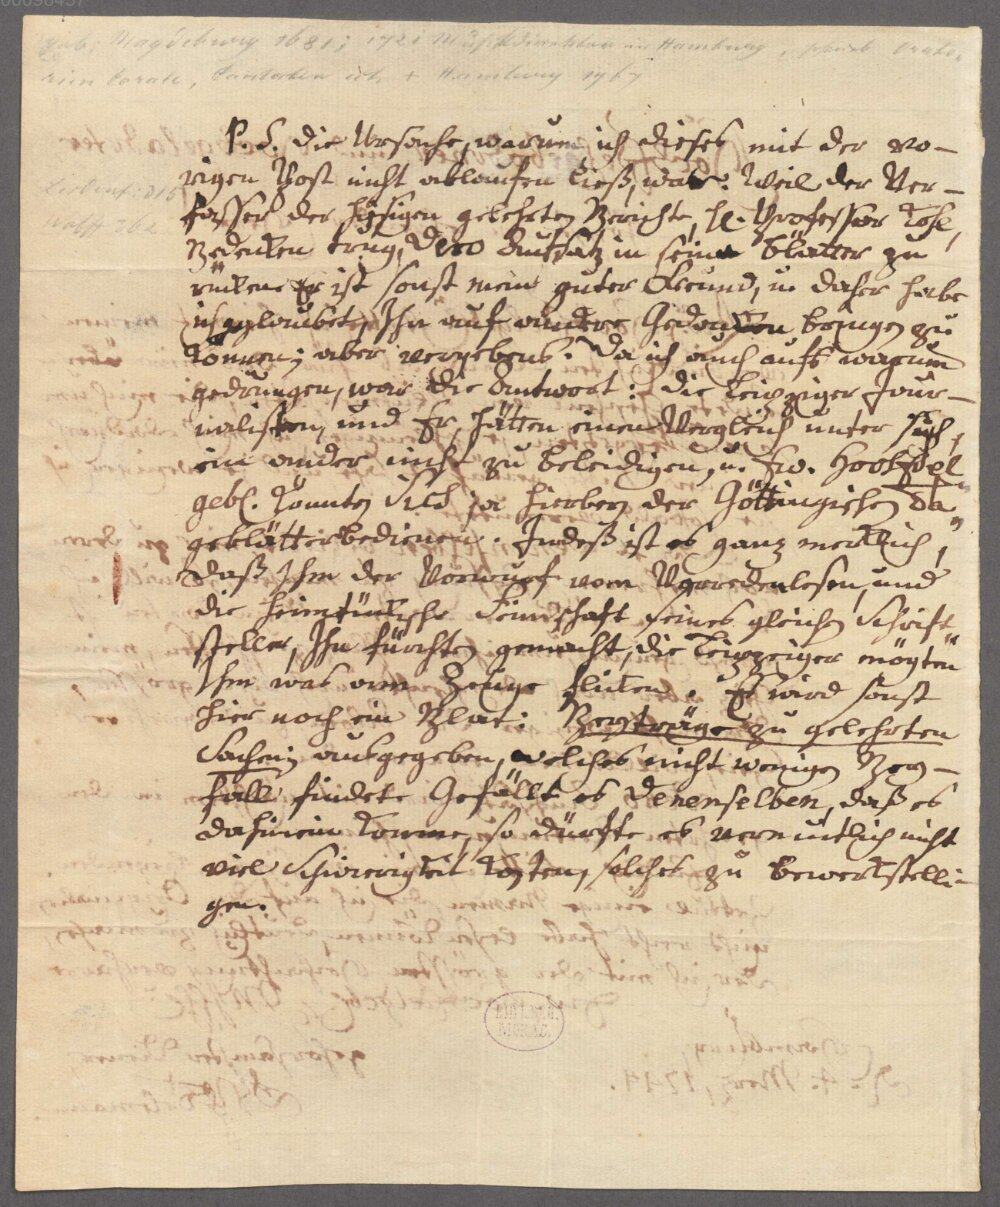 geb: Magdeburg 1681; 1721 Musikdirektor in Hamburg, schrieb Orato-
rien, Cantaten etc + Hamburg 1767
P. S. die Ursache, warum ich dieses mit der vo-
rigen Post nicht ablaufen ließ, war: Weil der Ver-
fasser der hiesigen gelehrten Berichte, H. Professor Kohl,
Bedenken trug, Dero Aufsatz in seine Blätter zu
rücken. Er ist sonst mein guter Freund, u. daher habe
ich geglaubet, Ihn auf andere Gedancken bringen zu
können; aber vergebens. Da ich auch aufs warum
gedrungen, war die Antwort: die Leipziger Jour-
nalisten, und Er, hätten einen Vergleich unter sich,
ein ander nicht zu beleidigen, u. Ew. HochEdel
gebl. könnten Sich ja hierbey der Göttingischen Ta-
geblätter bedienen. Indeß ist es ganz mercklich,
daß Ihm der Vorwurf vom Vorredenlesen, und
die heimtückische Feindschaft seines gleichen Schrift
steller, Ihn fürchten gemacht, die Leipzeiger mögten
Ihm was am Zeuge flicken. Es wird sonst
hier noch ein Blat: Beyträge zu gelehrten
Sachen; ausgegeben, welches nicht wenigen Bey-
fall findet. Gefällt es Denenselben, daß es
dahinein komme, so dürfte es vermuthlich nicht
viel Schwierigkeit kosten, solches zu bewerkstelli-
gen.